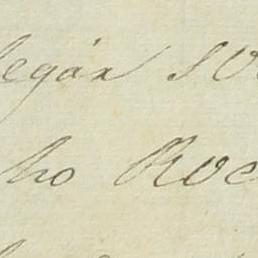 legán so
ho Roc